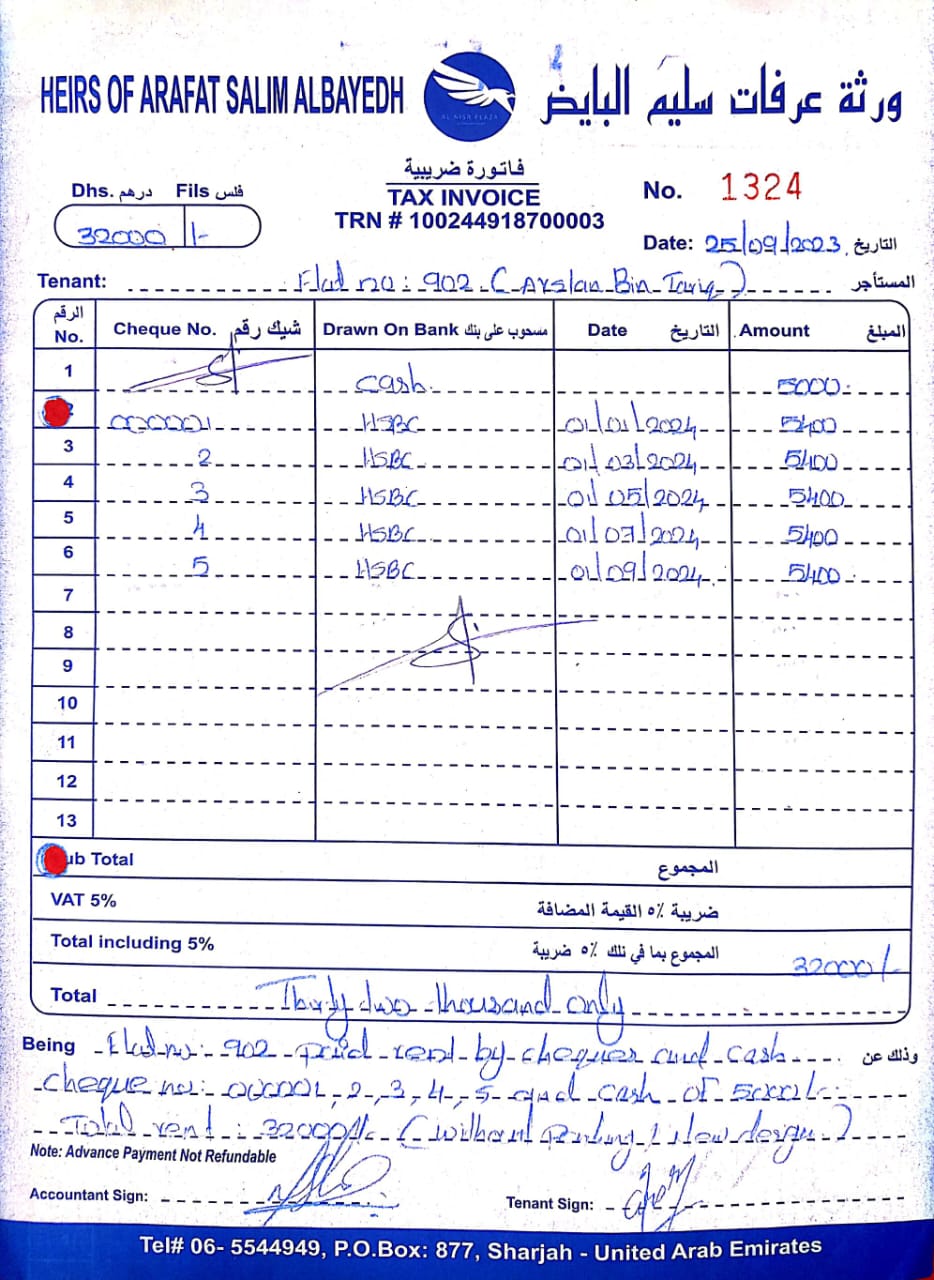 HEIRS OF ARAFAT SALIM ALBAYEDH
ورثة عرفات سليم البايض
AL NISR PLAZA
فاتورة ضريبية
TAX INVOICE
TRN # 100244918700003
Dhs. درهم Fils فلس
32000 /-
No. 1324
Date: 25/09/2023 التاريخ
Tenant: Flat no: 902 (Arslan Bin Tariq) المستأجر
الرقم No. Cheque No. شيك رقم Drawn On Bank مسحوب على بنك Date التاريخ Amount المبلغ
1 Cash 5000
2 000001 HSBC 01/01/2024 5400
3 2 HSBC 01/03/2024 5400
4 3 HSBC 01/05/2024 5400
5 4 HSBC 01/07/2024 5400
6 5 HSBC 01/09/2024 5400
7
8
9
10
11
12
13
ub Total المجموع
VAT 5% ضريبة ٥٪ القيمة المضافة
Total including 5% المجموع بما في تلك ٥٪ ضريبة 32000/-
Total Thirty two thousand only
Being Flat no: 902 paid rent by cheques and cash وذلك عن
cheque no: 000001, 2, 3, 4, 5 and cash of 5000/-
Total rent: 32000/- (without parking /
Note: Advance Payment Not Refundable
Accountant Sign:
Tenant Sign:
Tel# 06- 5544949, P.O.Box: 877, Sharjah - United Arab Emirates